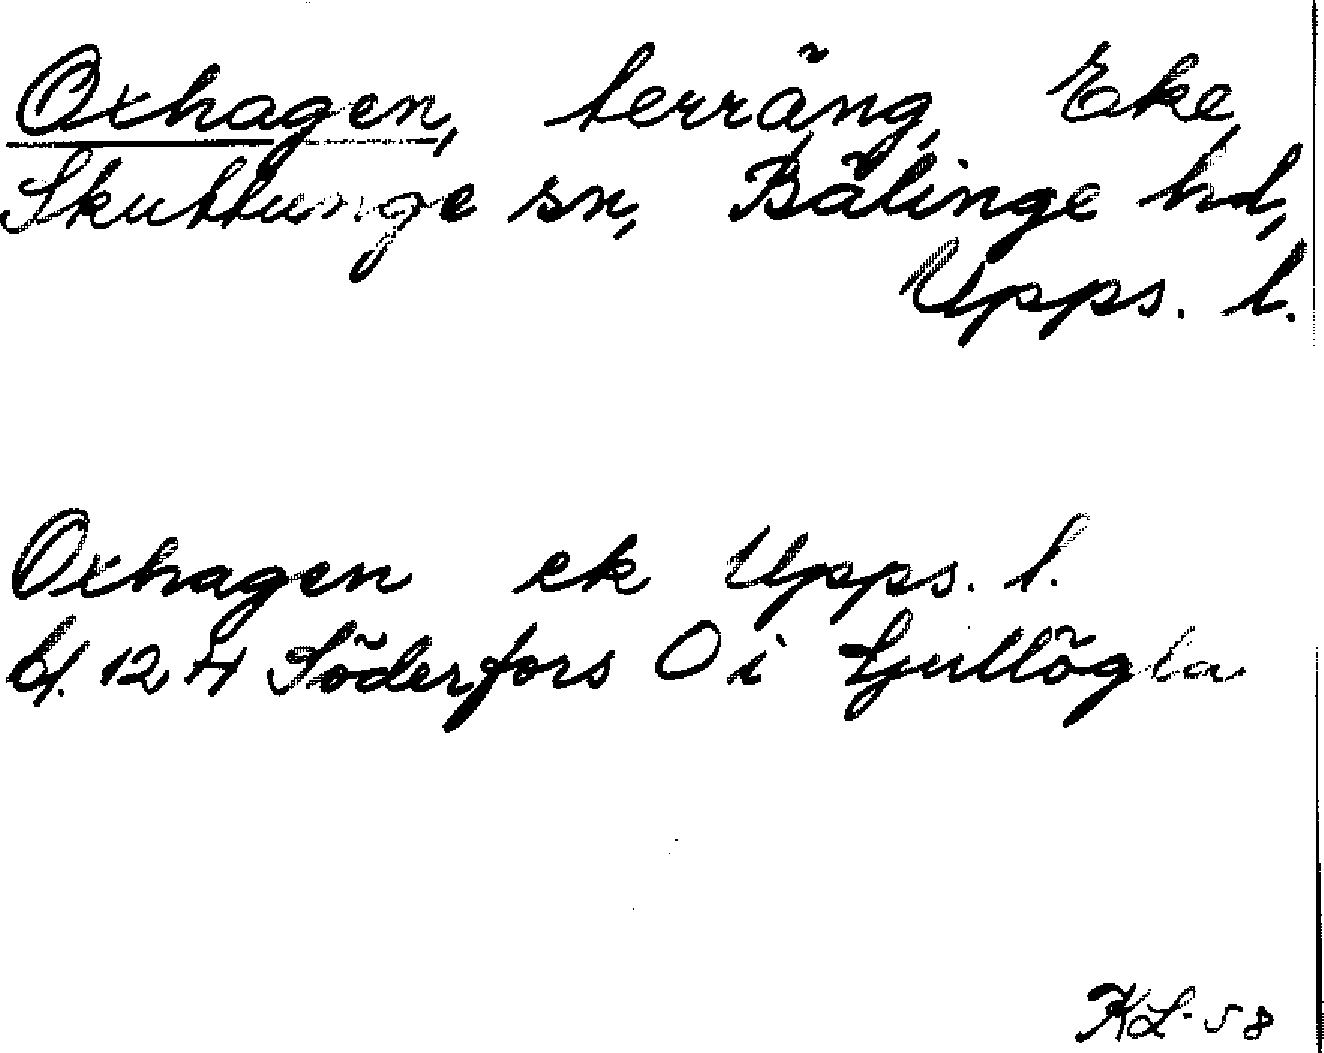 Oxhagen, terräng, Eke,
Skuttunge sn, Bälinge hd,
Upps. l.
Oxhagen ek Upps. l.
bl. 12 H Söderfors O i
KL-58